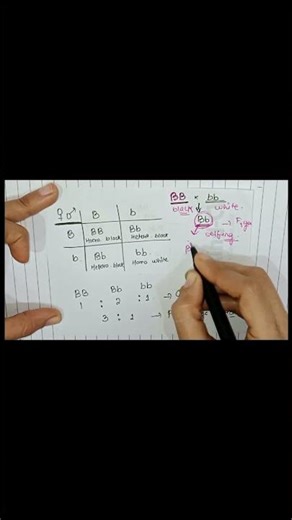 BB × bb
black white.
Bb → F1 gen
offspring
♀ ♂ B b
B BB Bb
Homo black Hetero black
b Bb bb
Hetero black Homo white
BB Bb bb
1 : 2 : 1 →
3 : 1 →